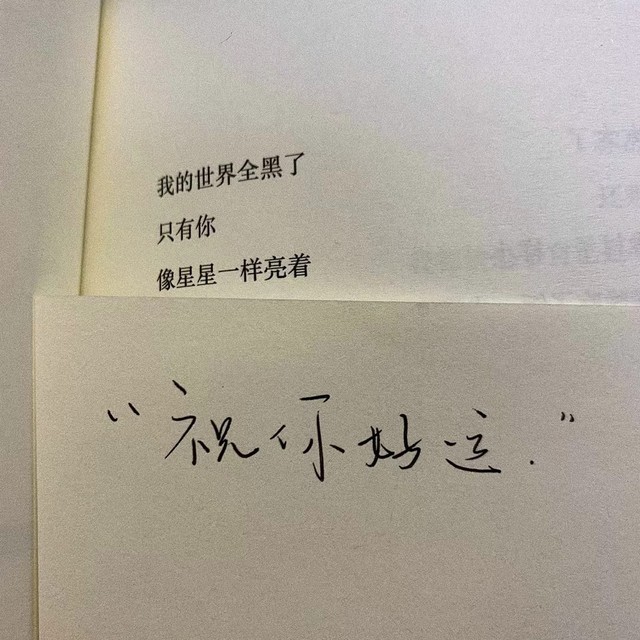 我的世界全黑了
只有你
像星星一样亮着
“祝你好运.”